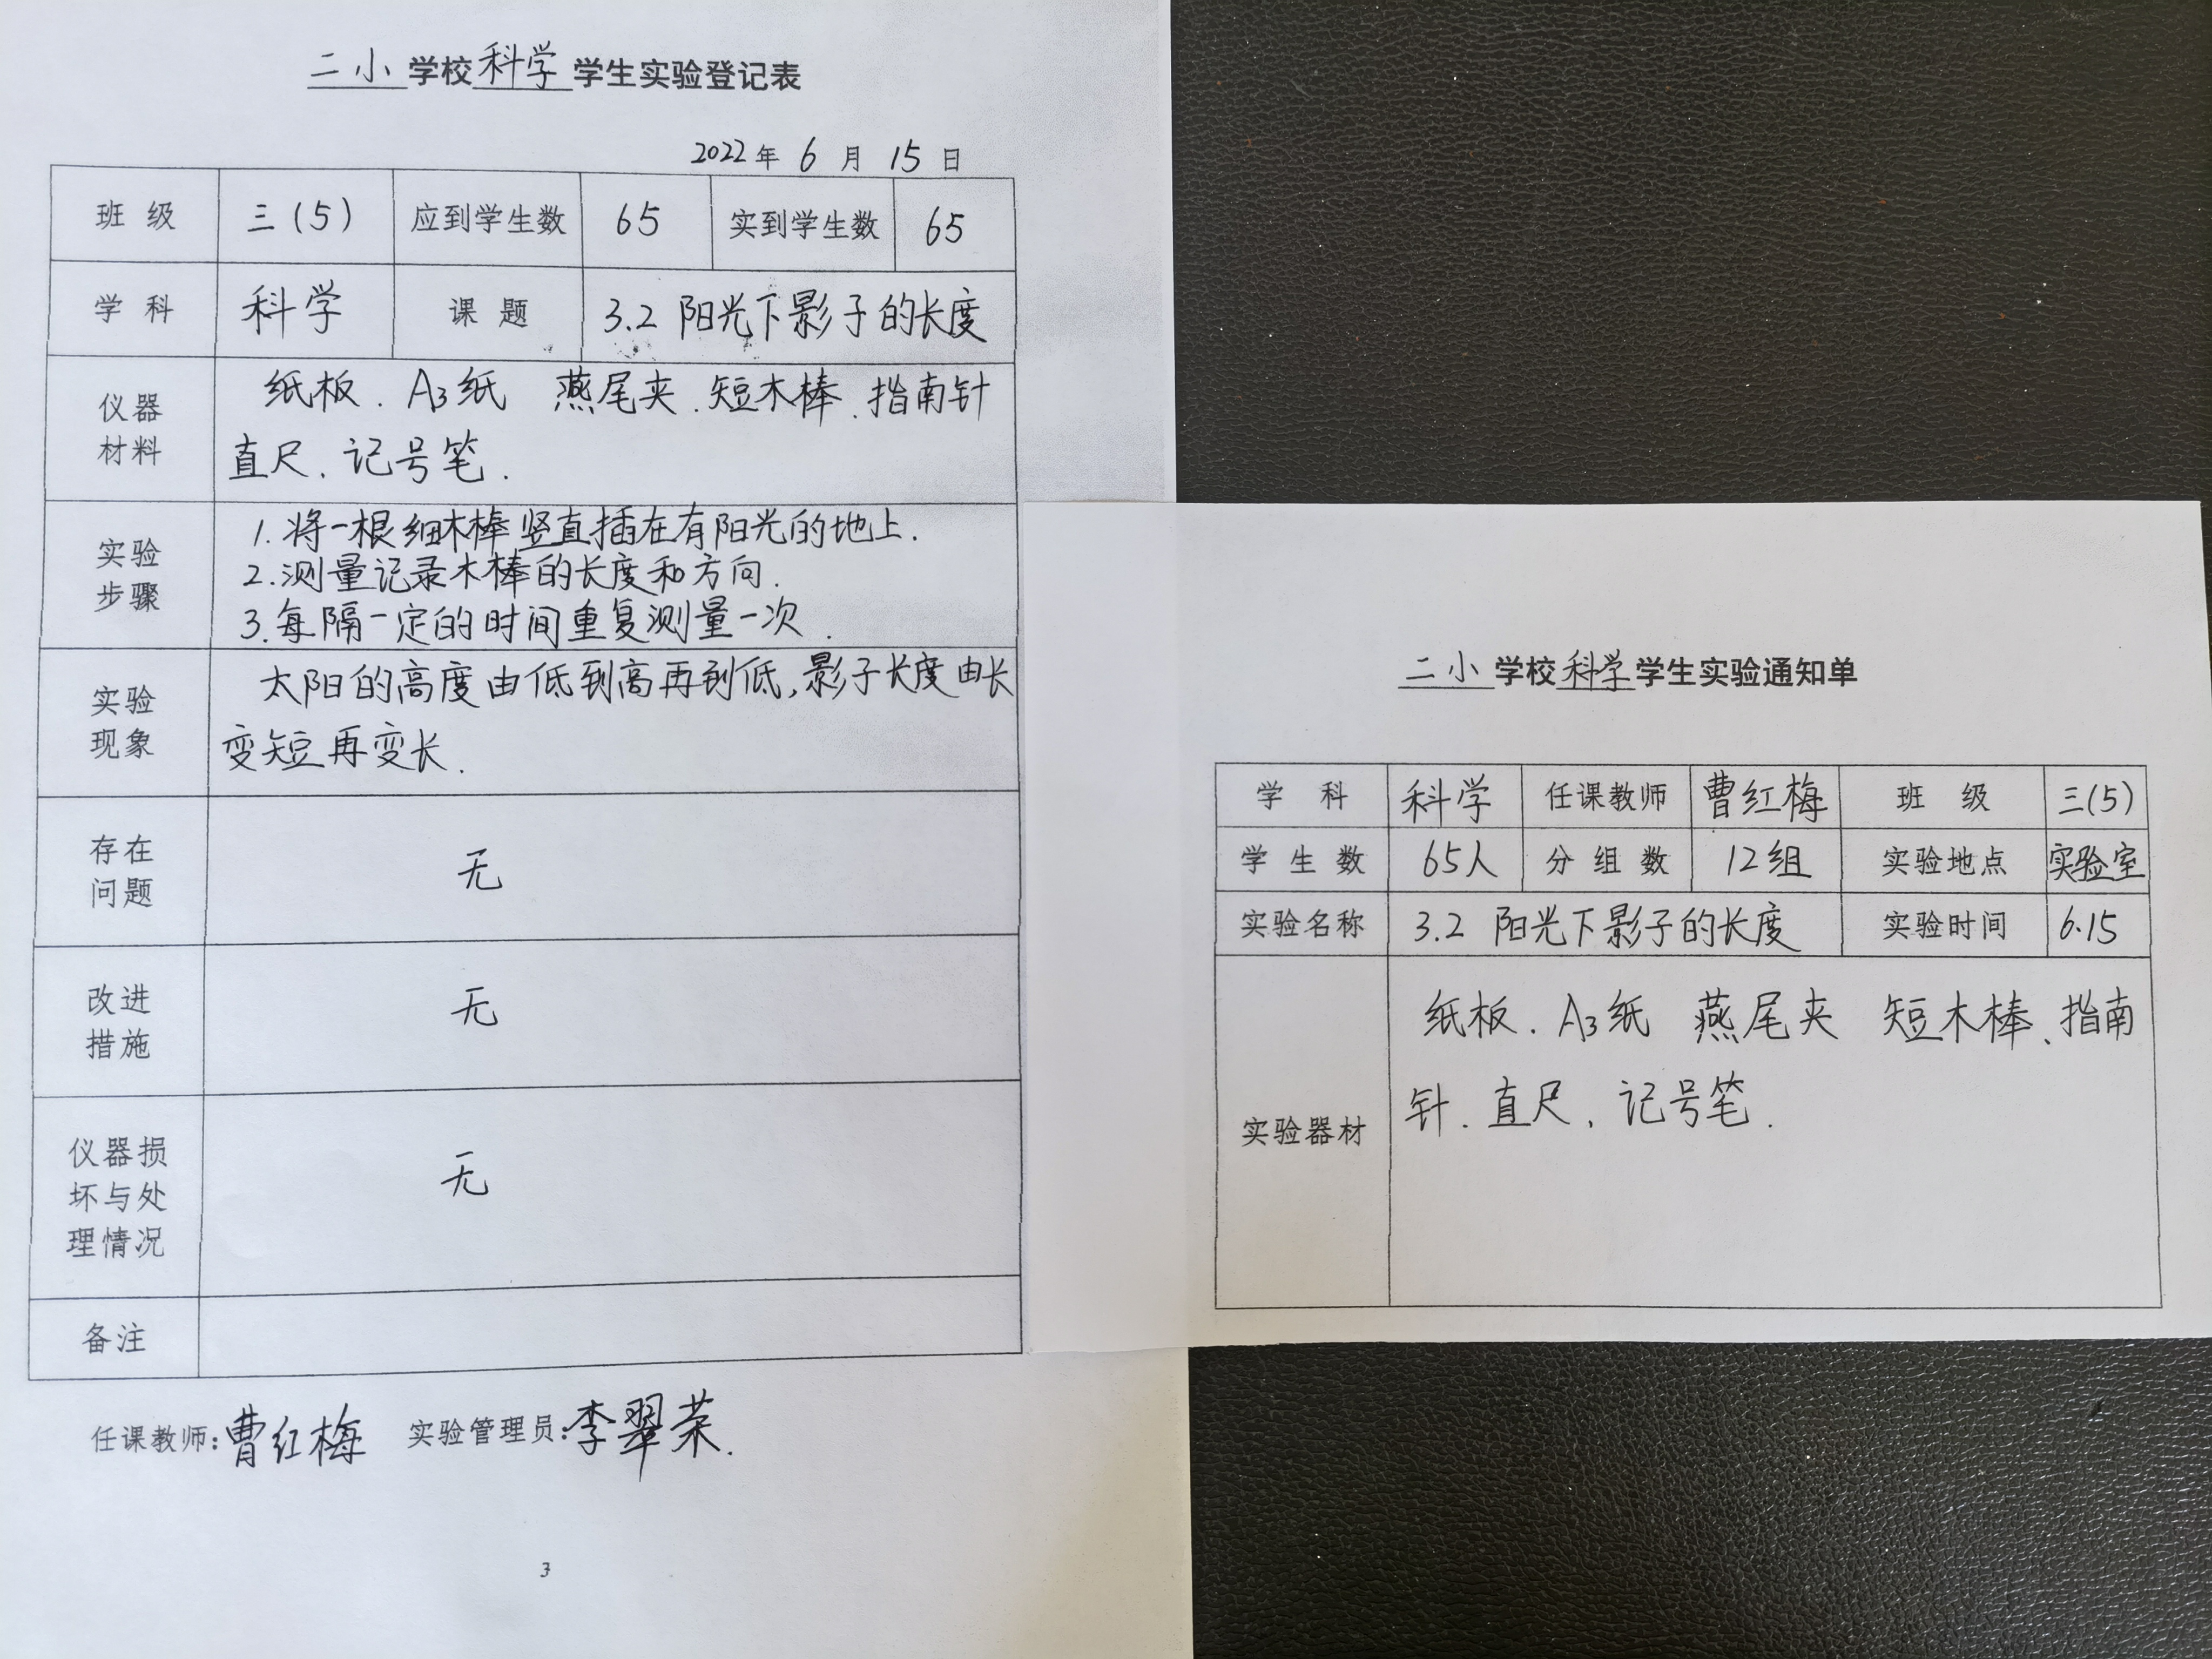 二小学校科学学生实验登记表
2022年6月15日
班级 三(5) 应到学生数 65 实到学生数 65
学科 科学 课题 3.2 阳光下影子的长度
仪器材料
纸板.A3纸 燕尾夹.短木棒、指南针
直尺、记号笔.
实验步骤
1.将一根细木棒竖直插在有阳光的地上.
2.测量记录木棒的长度和方向.
3.每隔一定的时间重复测量一次.
实验现象
太阳的高度由低到高再到低,影子长度由长
变短再变长.
存在问题
无
改进措施
无
仪器损坏与处理情况
无
备注
任课教师:曹红梅 实验管理员:李翠荣.
3
二小学校科学学生实验通知单
学科 科学 任课教师 曹红梅 班级 三(5)
学生数 65人 分组数 12组 实验地点 实验室
实验名称 3.2 阳光下影子的长度 实验时间 6.15
实验器材
纸板.A3纸 燕尾夹 短木棒、指南
针.直尺、记号笔.